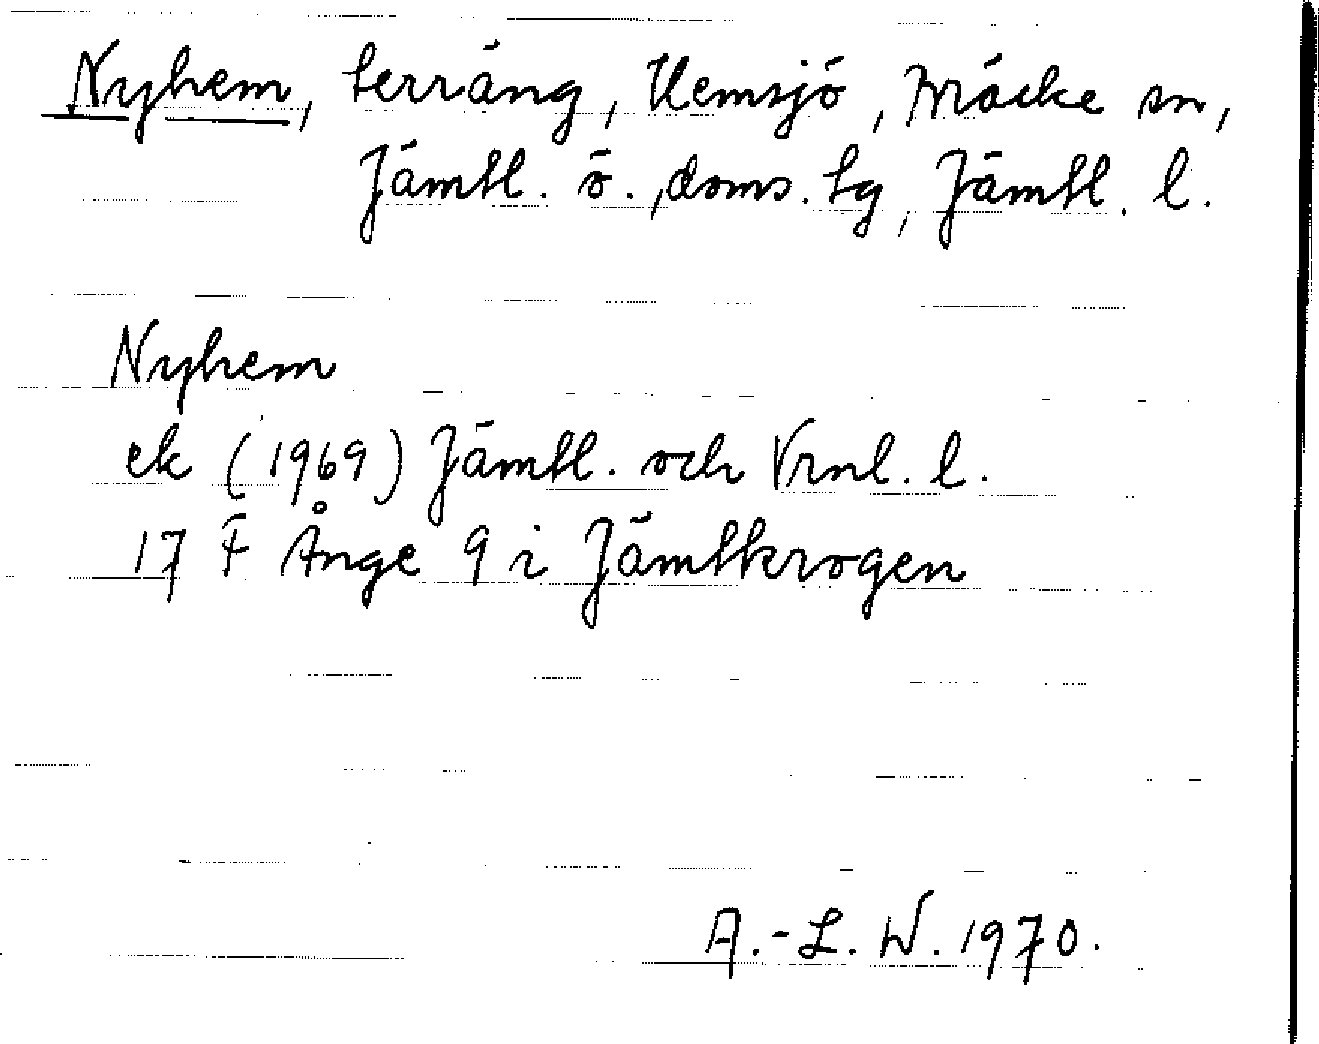 Nyhem, terräng, Hemsjö, Bräcke sn,
Jämtl. ö. doms. tg, Jämtl. l.
Nyhem
ek (1969) Jämtl. och Vrnl. l.
17 F Ånge 9 i Jämtkrogen
A.-L. W. 1970.